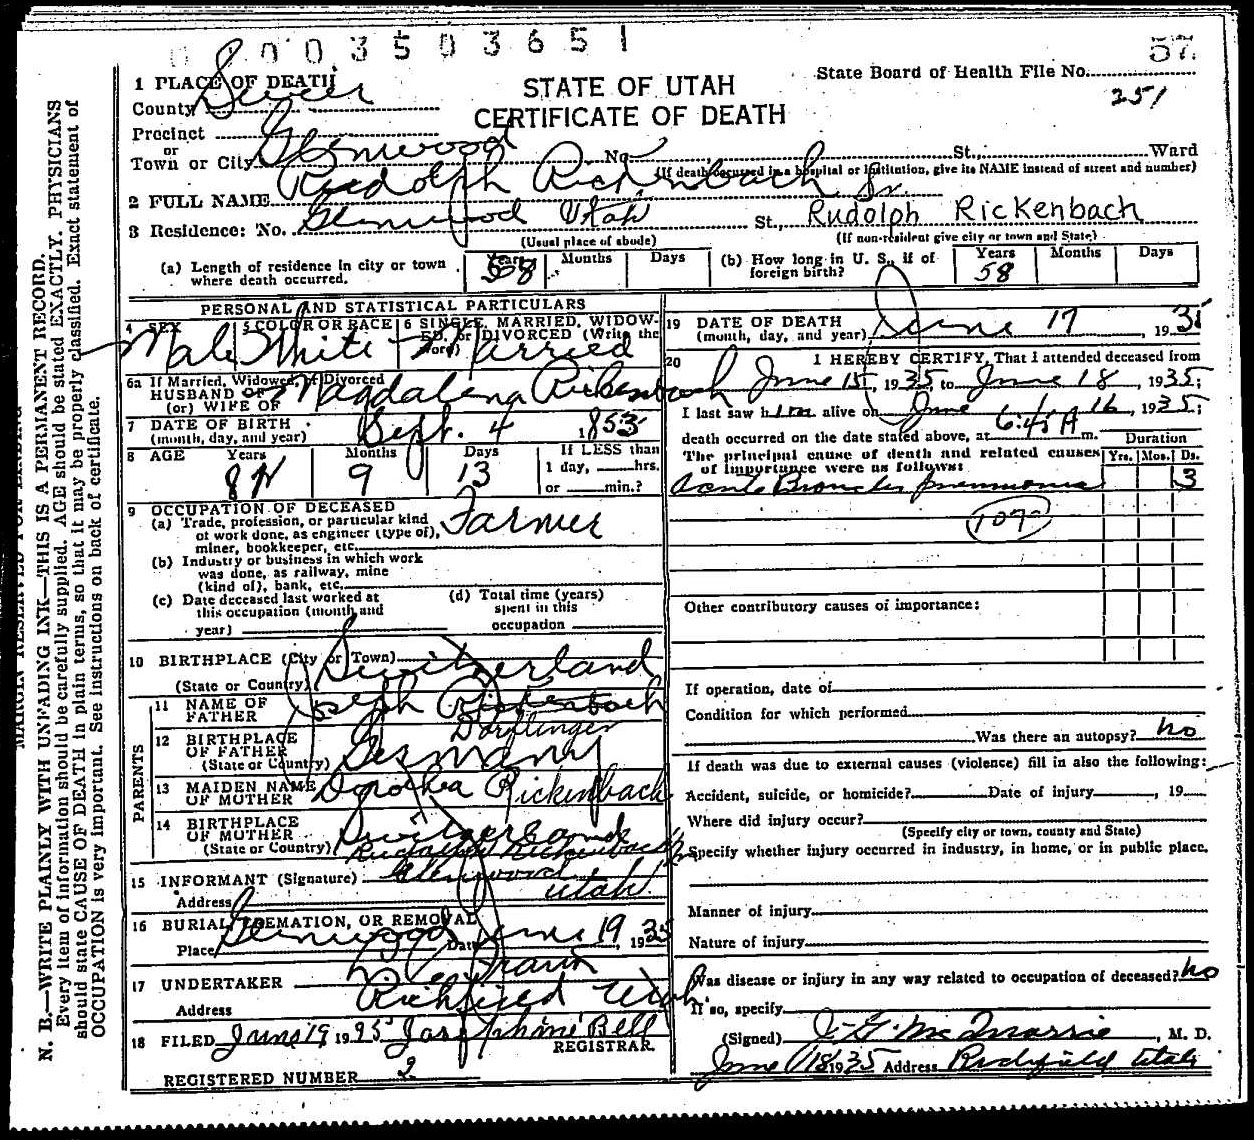 0 0 0 3 5 0 3 6 5 1
57
1 PLACE OF DEATH
County Sevier
STATE OF UTAH
CERTIFICATE OF DEATH
State Board of Health File No.
251
Precinct
or
Town or City Glenwood No. St., Ward
(If death occurred in a hospital or institution, give its NAME instead of street and number)
2 FULL NAME Rudolph Rickenbach Sr.
3 Residence: No. Glenwood Utah St., Rudolph Rickenbach
(Usual place of abode) (If non-resident give city or town and State)
(a) Length of residence in city or town where death occurred. Years 58 Months Days
(b) How long in U. S., if of foreign birth? Years 58 Months Days
PERSONAL AND STATISTICAL PARTICULARS
4 SEX 5 COLOR OR RACE 6 SINGLE, MARRIED, WIDOWED, or DIVORCED (Write the word)
Male White Married
6a If Married, Widowed, or Divorced
HUSBAND OF
(or) WIFE OF Magdalena Rickenbach
7 DATE OF BIRTH
(month, day, and year) Sept. 4 1853
8 AGE Years Months Days If LESS than
81 9 13 1 day, hrs.
or min.?
9 OCCUPATION OF DECEASED
(a) Trade, profession, or particular kind
of work done, as engineer (type of),
miner, bookkeeper, etc. Farmer
(b) Industry or business in which work
was done, as railway, mine
(kind of), bank, etc.
(c) Date deceased last worked at
this occupation (month and
year)
(d) Total time (years)
spent in this
occupation
10 BIRTHPLACE (City or Town)
(State or Country) Switzerland
PARENTS
11 NAME OF
FATHER Joseph Rickenbach
Dorflinger
12 BIRTHPLACE
OF FATHER
(State or Country) Germany
13 MAIDEN NAME
OF MOTHER Dorothea Rickenbach
14 BIRTHPLACE
OF MOTHER
(State or Country) Switzerland
15 INFORMANT (Signature) Rudolph Rickenbach Jr
Address Glenwood Utah.
16 BURIAL, CREMATION, OR REMOVAL
Place Glenwood Date June 19, 1935
17 UNDERTAKER
Address Richfield Utah
18 FILED June 19 1935 Josephine Bell
REGISTRAR.
REGISTERED NUMBER 2
19 DATE OF DEATH
(month, day, and year) June 17, 1935
20 I HEREBY CERTIFY, That I attended deceased from
June 15, 1935, to June 18, 1935;
I last saw him alive on June 16, 1935;
death occurred on the date stated above, at 6:45 A m.
The principal cause of death and related causes
of importance were as follows:
Duration
Yrs. Mos. Ds.
Acute Broncho pneumonia 3
107
Other contributory causes of importance:
If operation, date of
Condition for which performed
Was there an autopsy? no
If death was due to external causes (violence) fill in also the following:
Accident, suicide, or homicide? Date of injury , 19
Where did injury occur?
(Specify city or town, county and State)
Specify whether injury occurred in industry, in home, or in public place.
Manner of injury
Nature of injury
Was disease or injury in any way related to occupation of deceased? no
If so, specify
(Signed) , M. D.
June 18 1935 Address Richfield Utah
MARGIN RESERVED FOR BINDING
N. B.—WRITE PLAINLY WITH UNFADING INK—THIS IS A PERMANENT RECORD.
Every item of information should be carefully supplied. AGE should be stated EXACTLY. PHYSICIANS
should state CAUSE OF DEATH in plain terms, so that it may be properly classified. Exact statement of
OCCUPATION is very important. See instructions on back of certificate.